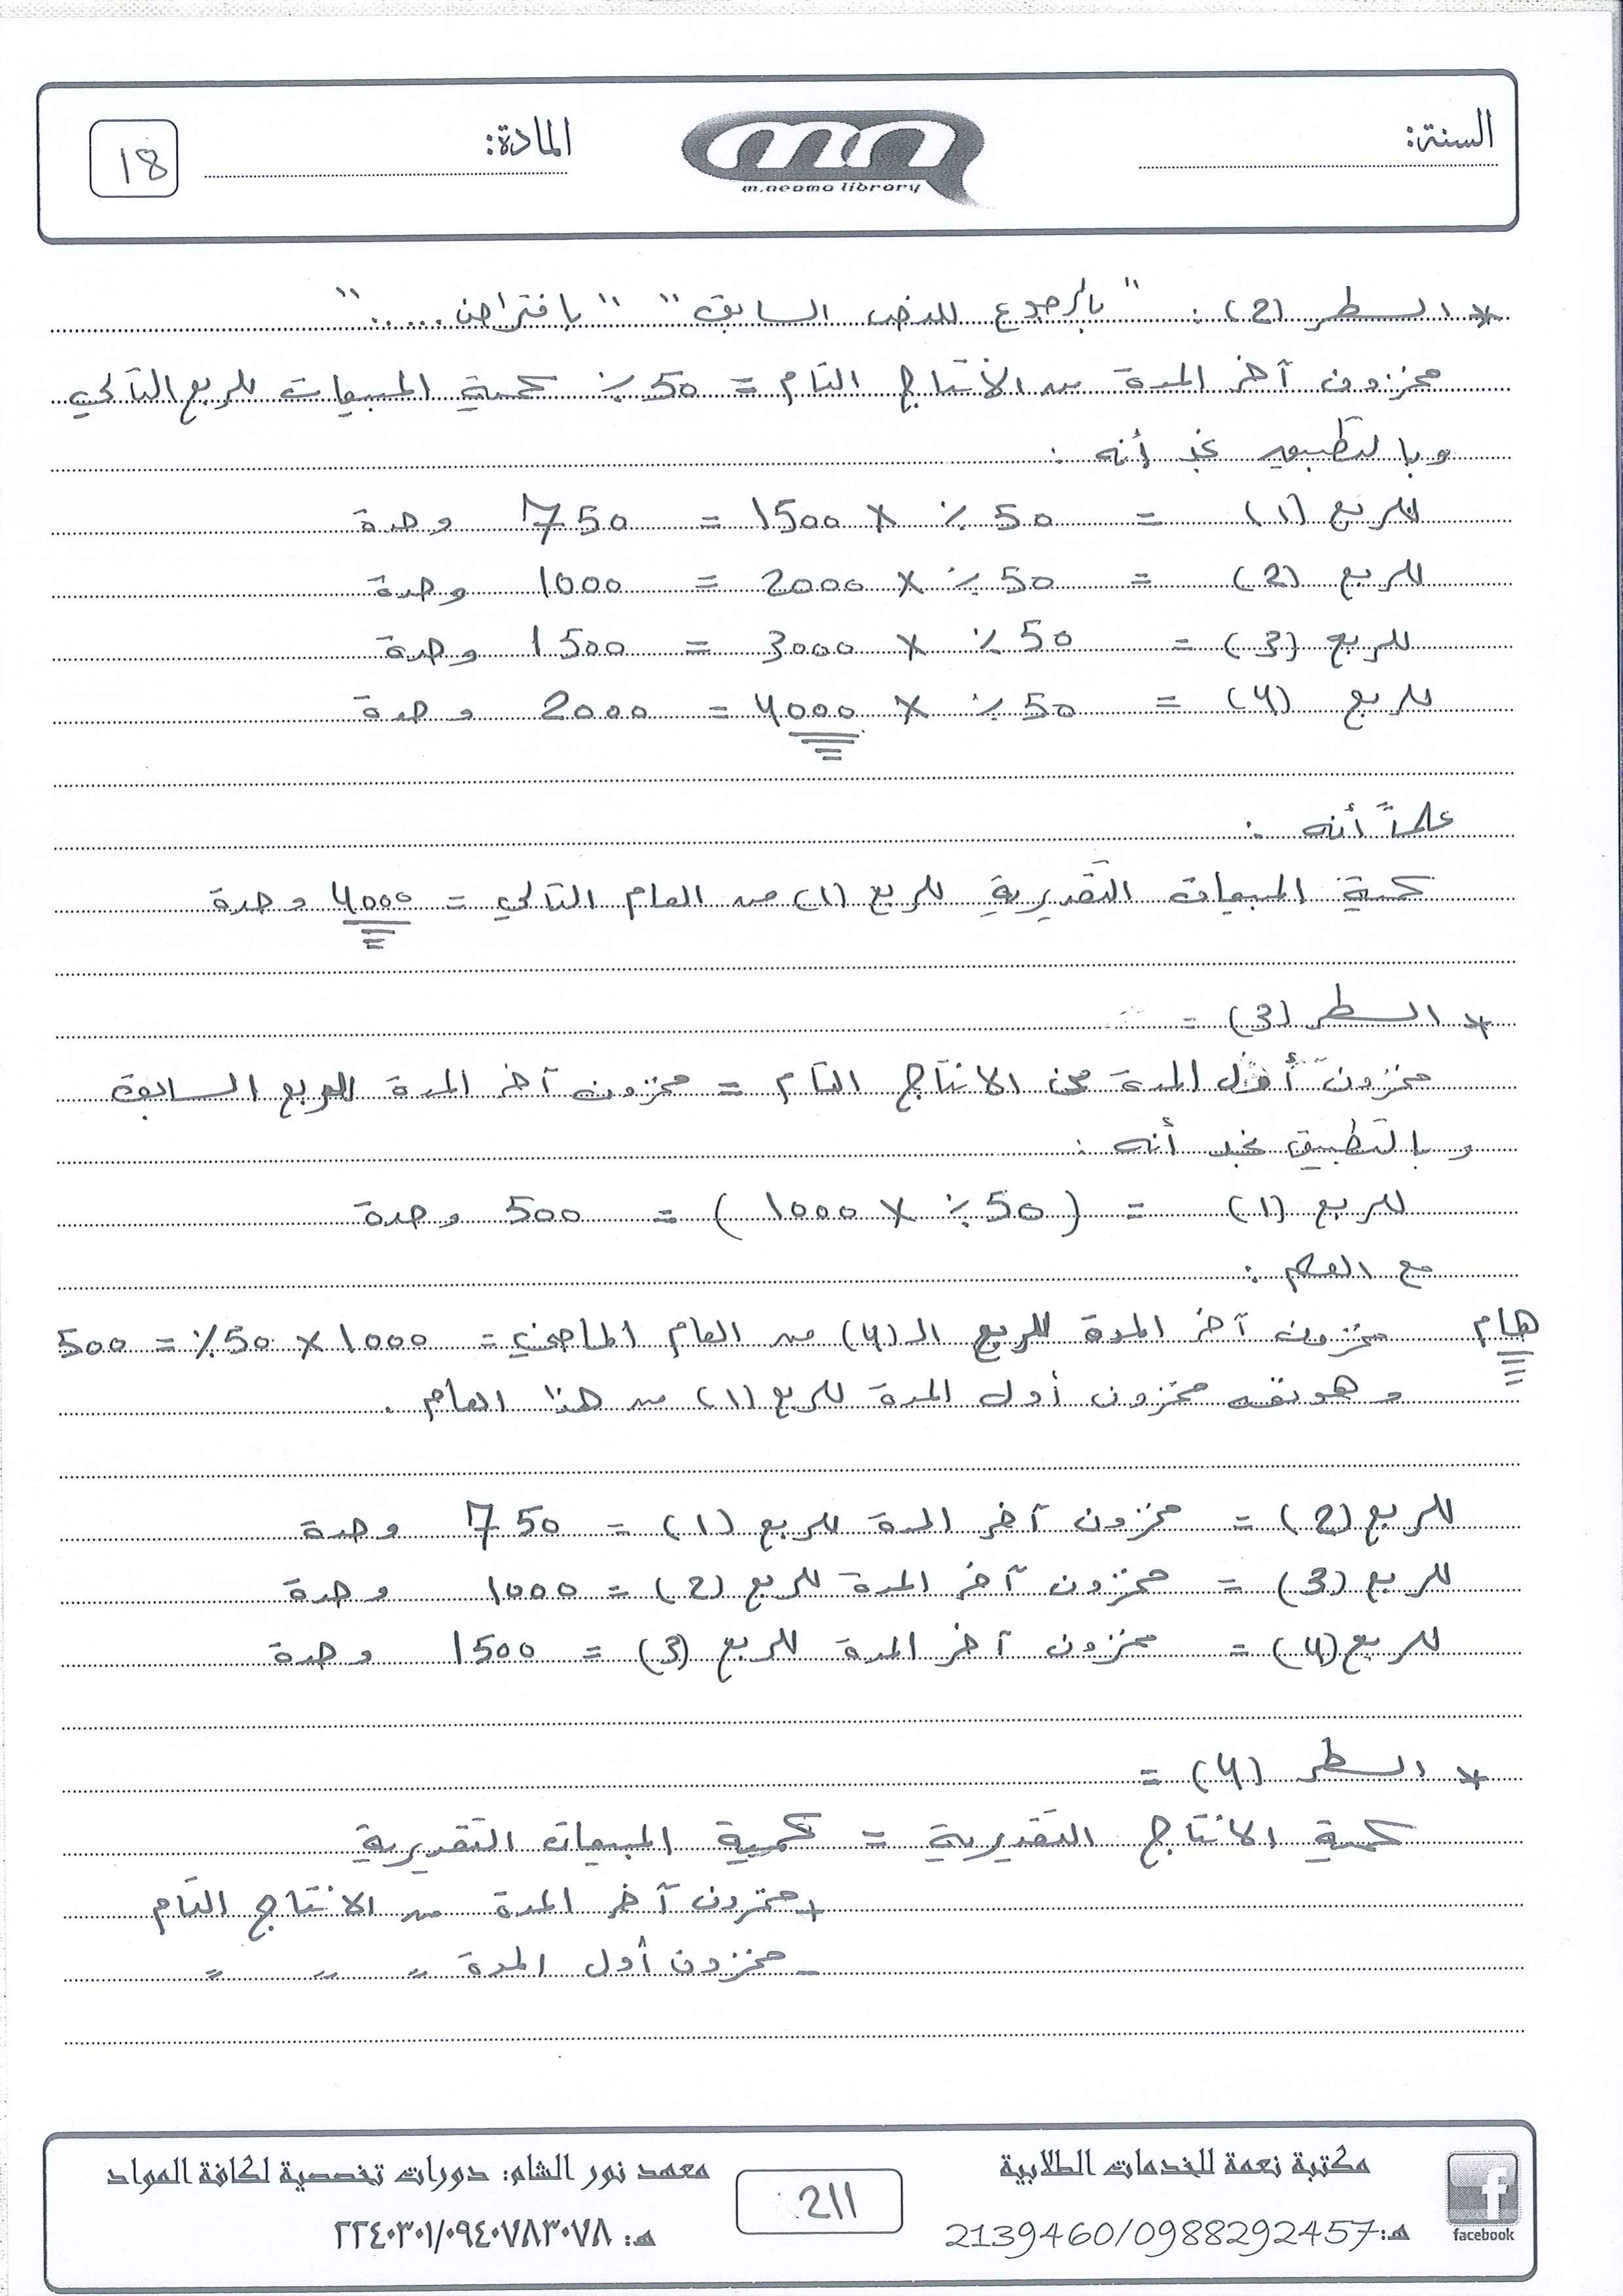 السنة:
m.neama library
المادة:
18
* السطر (2): "بالرجوع للنص السابق" "بافتراض....."
مخزون آخر المدة من الانتاج التام = 50٪ كمية المبيعات للربع التالي
وبالتطبيق نجد أنه :
للربع (1) = 50٪ × 1500 = 750 وحدة
للربع (2) = 50٪ × 2000 = 1000 وحدة
للربع (3) = 50٪ × 3000 = 1500 وحدة
للربع (4) = 50٪ × 4000 = 2000 وحدة
علماً أنه :
كمية المبيعات التقديرية للربع (1) من العام التالي = 4000 وحدة
* السطر (3) =
مخزون أول المدة من الانتاج التام = مخزون آخر المدة للربع السابق
وبالتطبيق نجد أنه :
للربع (1) = (50٪ × 1000) = 500 وحدة
مع العلم :
هام مخزون آخر المدة للربع الـ(4) من العام الماضي = 1000 × 50٪ = 500
وهو نفسه مخزون أول المدة للربع (1) من هذا العام .
للربع (2) = مخزون آخر المدة للربع (1) = 750 وحدة
للربع (3) = مخزون آخر المدة للربع (2) = 1000 وحدة
للربع (4) = مخزون آخر المدة للربع (3) = 1500 وحدة
* السطر (4) =
كمية الانتاج التقديرية = كمية المبيعات التقديرية
+ مخزون آخر المدة من الانتاج التام
- مخزون أول المدة " " "
مكتبة نعمة للخدمات الطلابية
هـ: 2139460/0988292457
facebook
211
معهد نور الشام: دورات تخصصية لكافة المواد
هـ: ٢٢٤٠٣٠١/٠٩٤٠٧٨٣٠٧٨